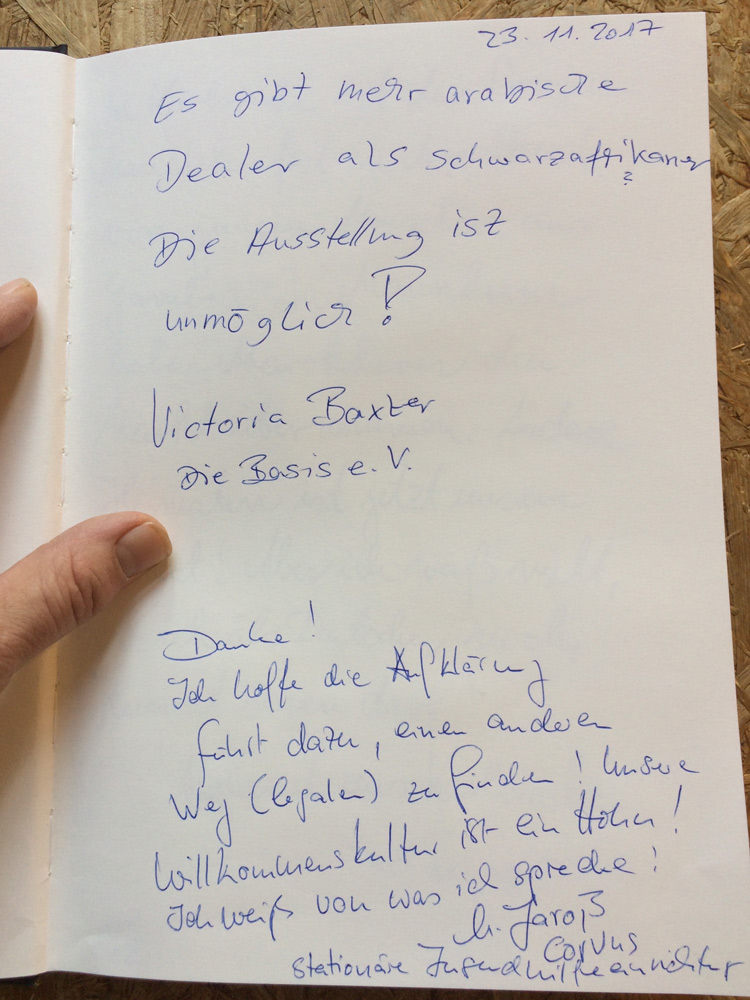 23. 11. 2017
Es gibt mehr arabische
Dealer als schwarzaffrikaner
?
Die Ausstellung ist
unmöglich!
Victoria Baxter
Die Basis e. V.
Danke!
Ich hoffe die Aufklärung
führt dazu, einen anderen
Weg (legalen) zu finden! Unsere
Willkommenskultur ist ein Hohn!
Ich weiß von was ich spreche!
Jaroß
Corvus
stationäre Jugendhilfeeinrichtung